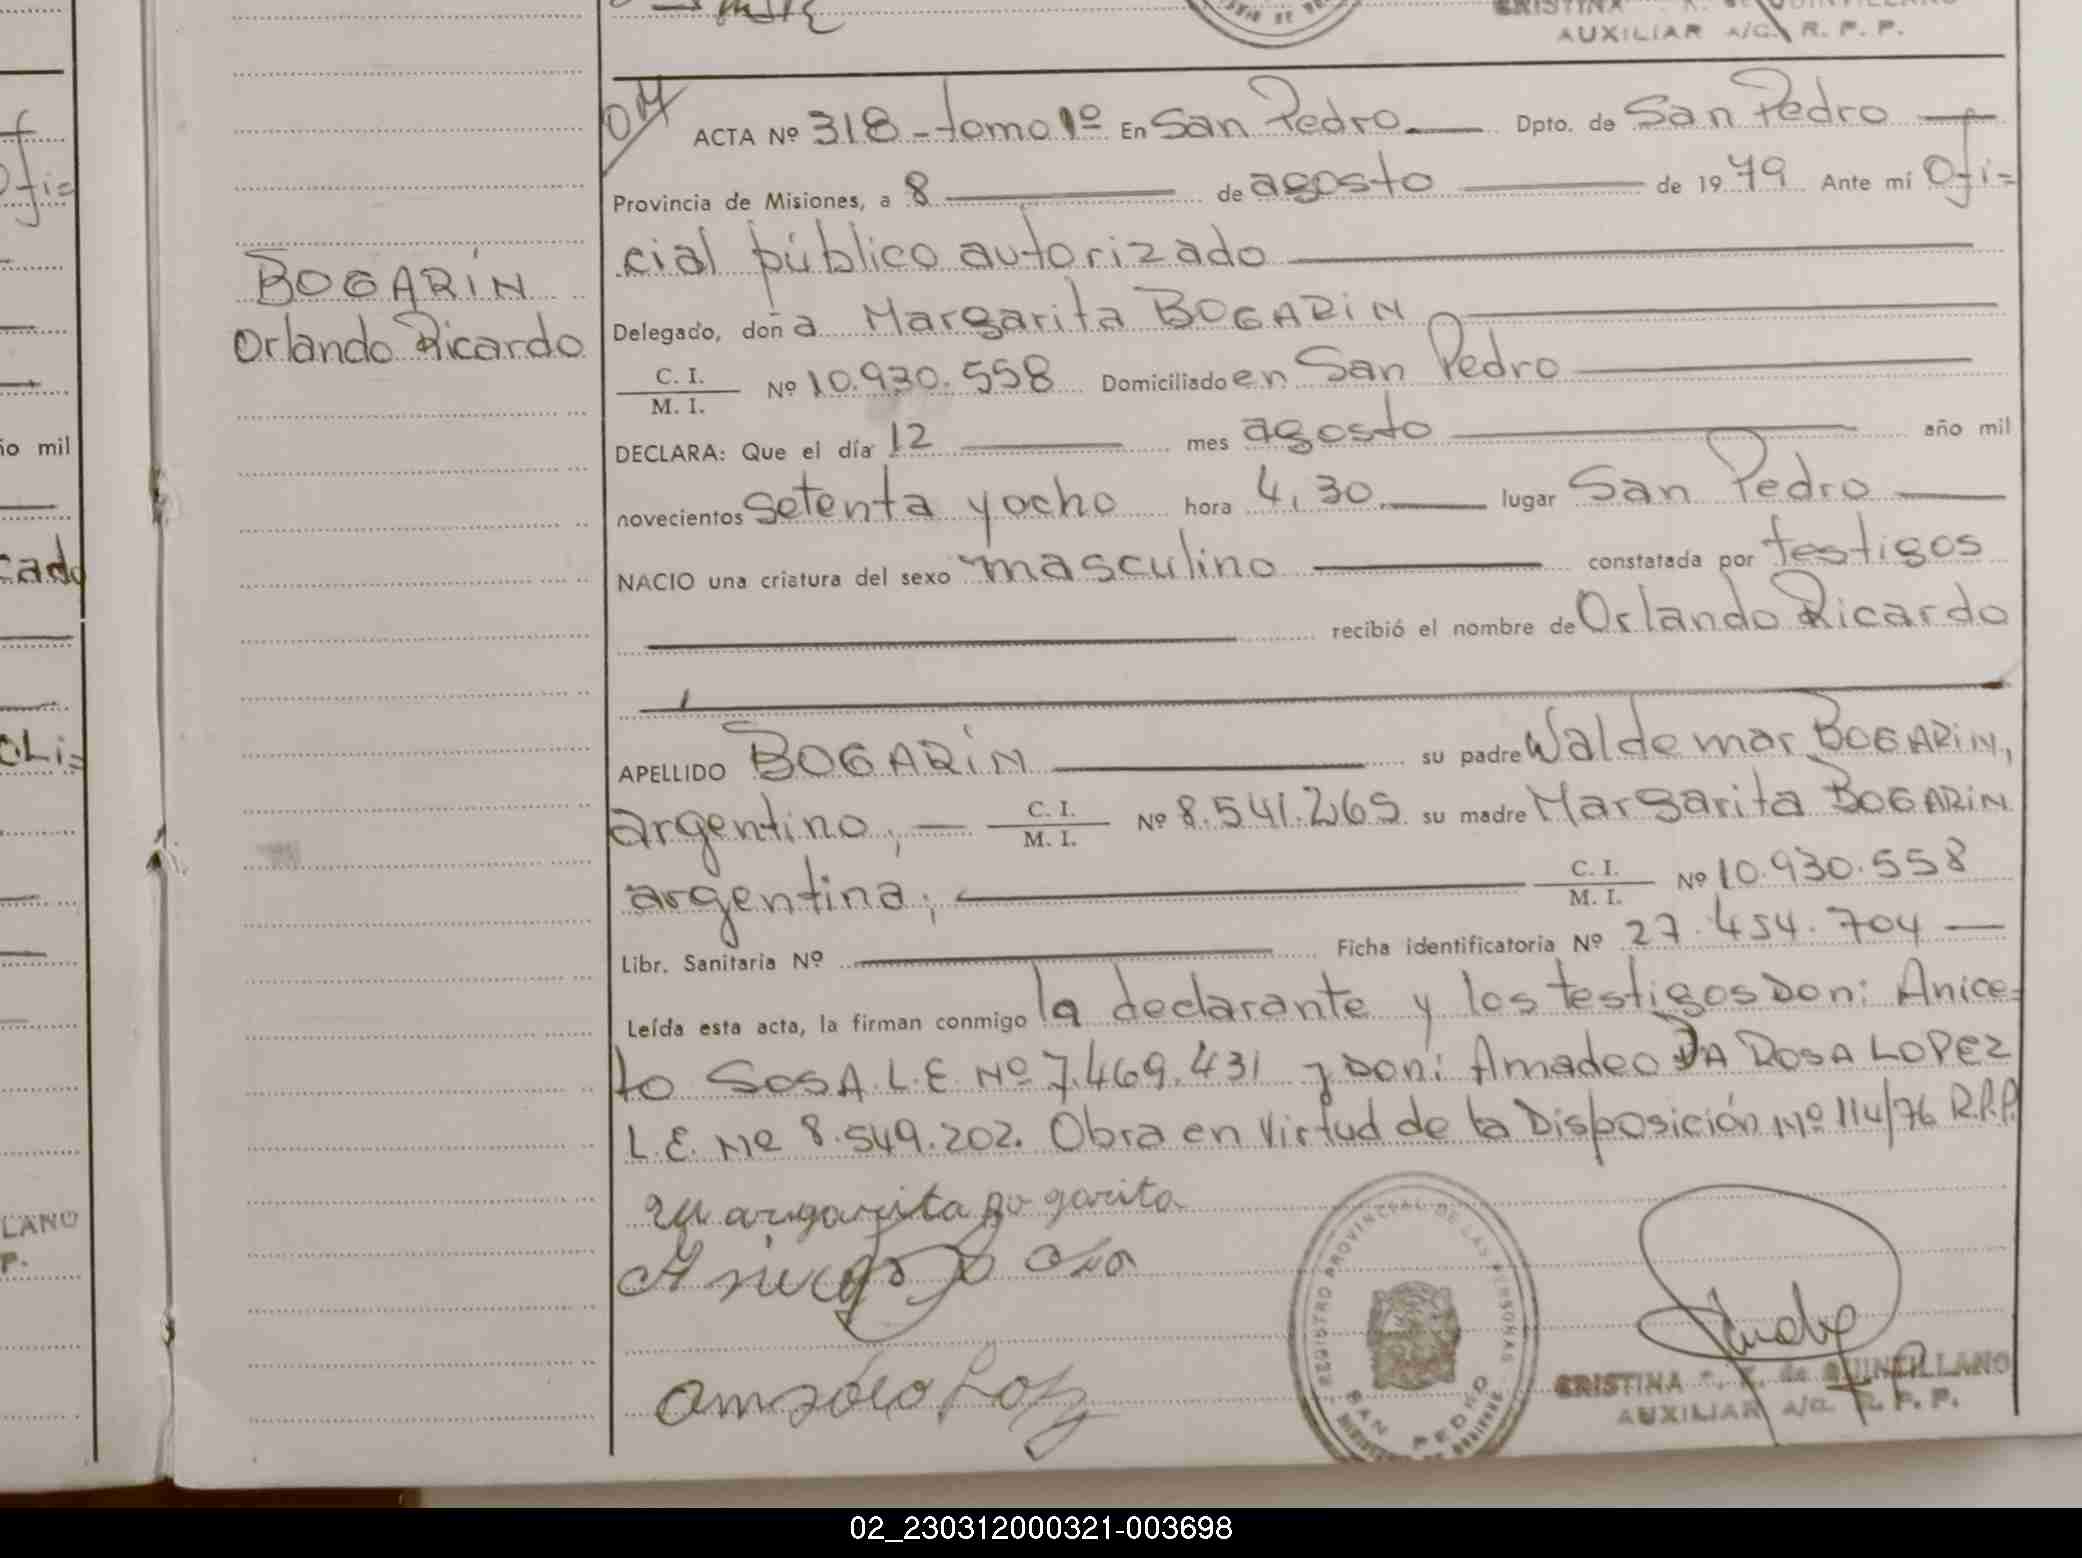 CRISTINA
AUXILIAR A/C. R. P. P.
OM
ACTA Nº 318 - tomo 1º En San Pedro. Dpto. de San Pedro
Provincia de Misiones, a 8 de agosto de 1979 Ante mí Ofi=
cial público autorizado
Delegado, doña Margarita BOGARIN
C. I.
M. I. Nº 10.930.558 Domiciliado en San Pedro
DECLARA: Que el día 12 mes agosto año mil
novecientos setenta y ocho hora 4,30 lugar San Pedro
NACIO una criatura del sexo masculino constatada por testigos
recibió el nombre de Orlando Ricardo
APELLIDO BOGARIN su padre Waldemar BOGARIN,
argentino, C. I.
M. I. Nº 8.541.265 su madre Margarita BOGARIN
argentina; C. I.
M. I. Nº 10.930.558
Libr. Sanitaria Nº Ficha identificatoria Nº 27.454.704
Leída esta acta, la firman conmigo la declarante y los testigos Don: Anice=
to SOSA L.E. Nº 7.469.431 y Don: Amadeo DA ROSA LOPEZ
L.E. Nº 8.549.202. Obra en Virtud de la Disposición Nº 114/76 R.P.P.
BOGARIN
Orlando Ricardo
Ofi=
io mil
cado
OLi=
LANO
P.
Margarita Bogarita
REGISTRO PROVINCIAL DE LAS PERSONAS
SAN PEDRO
CRISTINA de QUINTILLANO
AUXILIAR A/C. R. P. P.
02_230312000321-003698